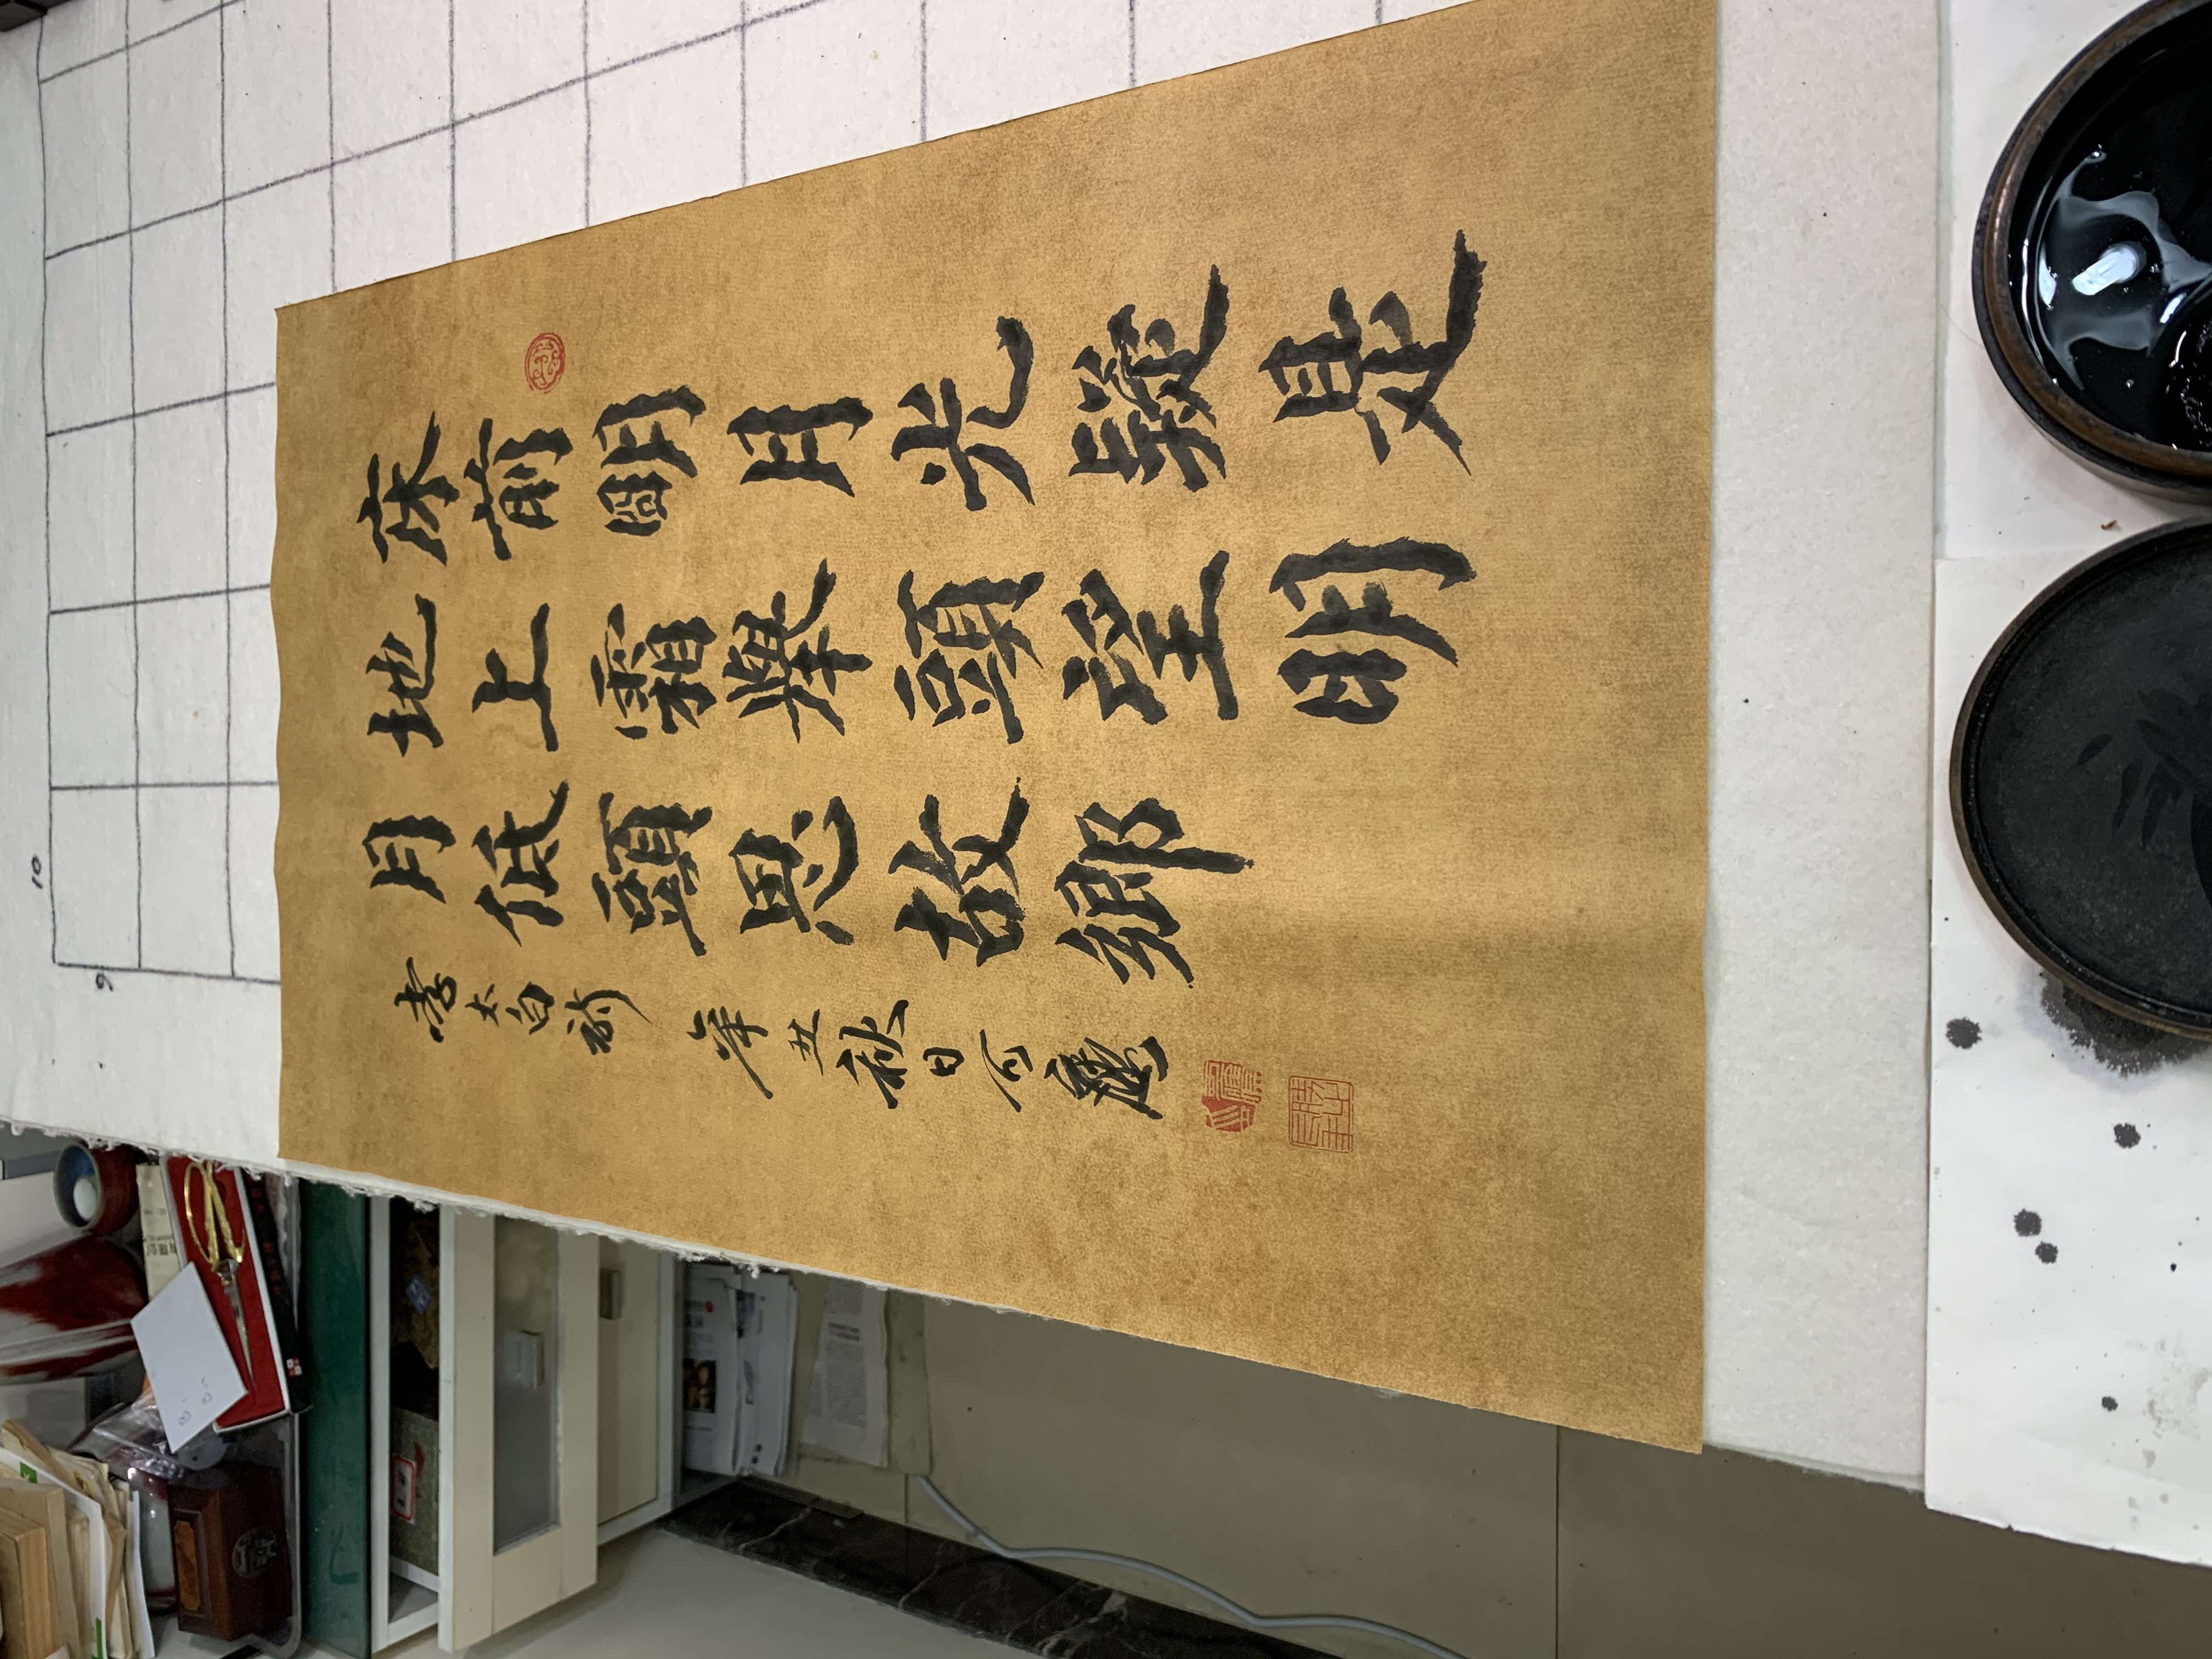 床前明月光疑是
地上霜舉頭望明
月低頭思故鄉
李太白詩 辛丑秋日
10
9